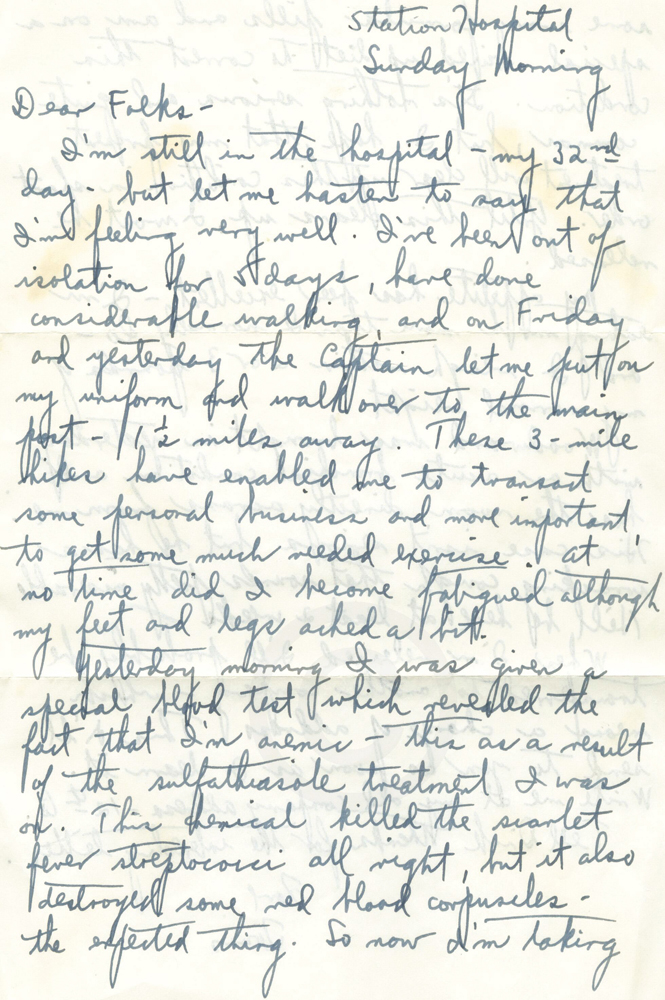 Station Hospital
Sunday Morning
Dear Folks-
I'm still in the hospital - my 32nd
day - but let me hasten to say that
I'm feeling very well. I've been out of
isolation for 5 days, have done
considerable walking, and on Friday
and yesterday the Captain let me put on
my uniform and walk over to the main
post - 1½ miles away. These 3-mile
hikes have enabled me to transact
some personal business and more important,
to get some much needed exercise. At
no time did I become fatigued although
my feet and legs ached a bit.
Yesterday morning I was given a
special blood test which revealed the
fact that I'm anemic - this as a result
of the sulfathiasole treatment I was
on. This chemical killed the scarlet
fever streptococci all right, but it also
destroyed some red blood corpuscles -
the expected thing. So now I'm taking